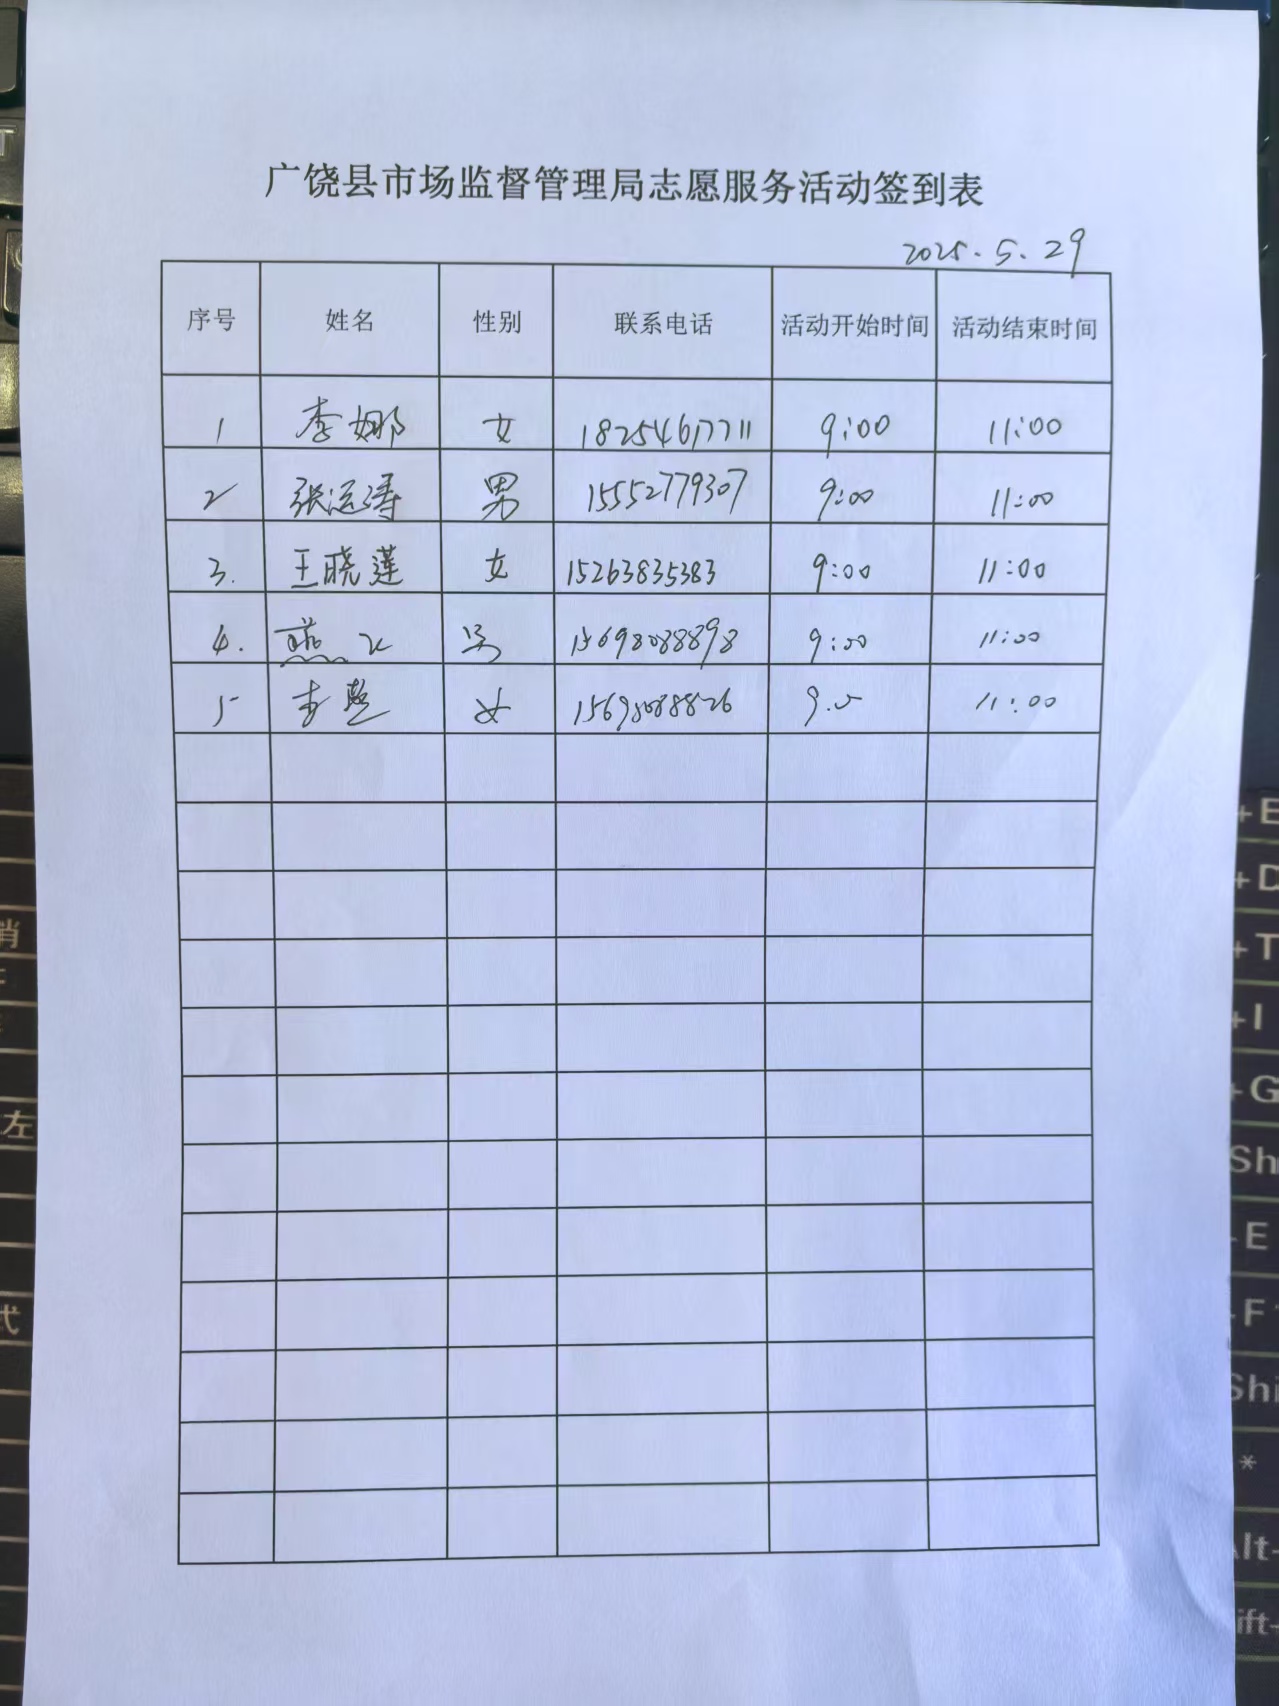 广饶县市场监督管理局志愿服务活动签到表
2025.5.29
序号 姓名 性别 联系电话 活动开始时间 活动结束时间
1 李娜 女 18254617711 9:00 11:00
2 张运涛 男 15552779307 9:00 11:00
3. 王晓莲 女 15263835383 9:00 11:00
4. 燕 男 15698088898 9:00 11:00
5 李 女 15698088826 11:00
+E
+D
销
+T
+I
+G
左
Sh
-E
式
-F
Shi
*
Alt-
ift-